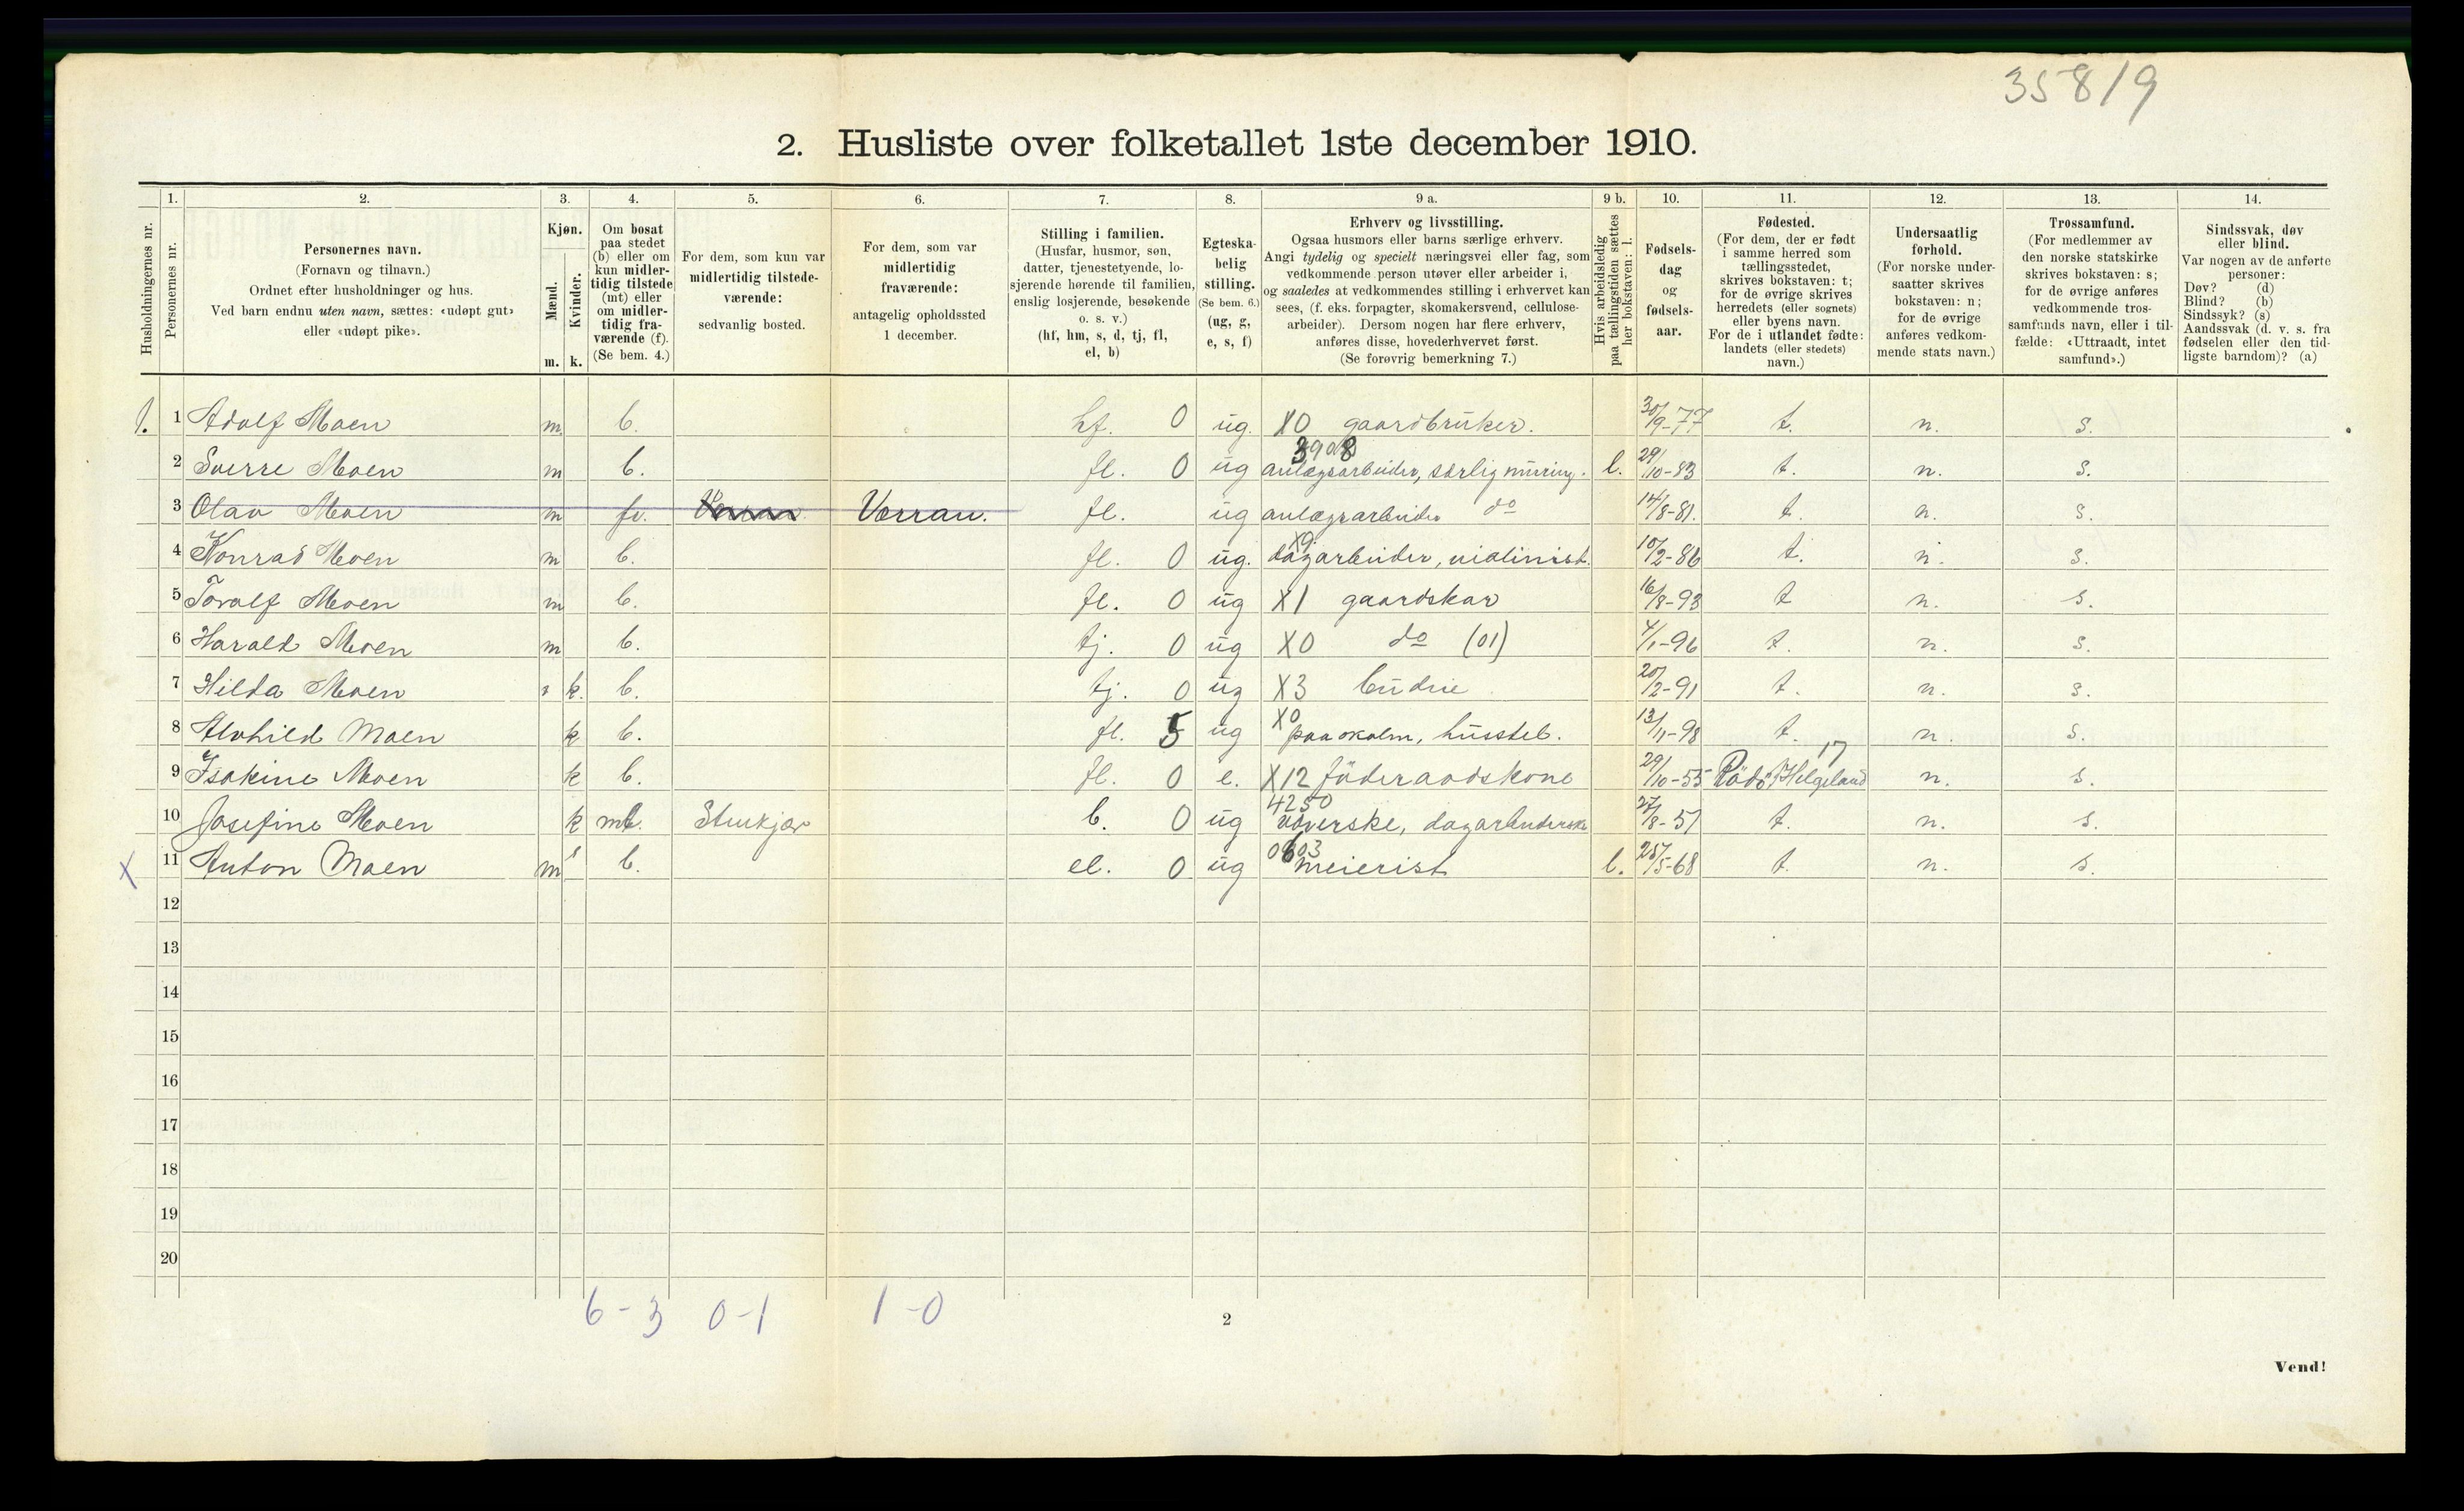 35819
2. Husliste over folketallet 1ste december 1910.
1. 2. 3. 4. 5. 6. 7. 8. 9 a. 9 b. 10. 11. 12. 13. 14.
Husholdningernes nr.
Personernes nr.
Personernes navn.
(Fornavn og tilnavn.)
Ordnet efter husholdninger og hus.
Ved barn endnu uten navn, sættes: «udøpt gut»
eller «udøpt pike».
Kjøn.
Mænd.
m.
Kvinder.
k.
Om bosat
paa stedet
(b) eller om
kun midler-
tidig tilstede
(mt) eller
om midler-
tidig fra-
værende (f).
(Se bem. 4.)
For dem, som kun var
midlertidig tilstede-
værende:
sedvanlig bosted.
For dem, som var
midlertidig
fraværende:
antagelig opholdssted
1 december.
Stilling i familien.
(Husfar, husmor, søn,
datter, tjenestetyende, lo-
sjerende hørende til familien,
enslig losjerende, besøkende
o. s. v.)
(hf, hm, s, d, tj, fl,
el, b)
Egteska-
belig
stilling.
(Se bem. 6.)
(ug, g,
e, s, f)
Erhverv og livsstilling.
Ogsaa husmors eller barns særlige erhverv.
Angi tydelig og specielt næringsvei eller fag, som
vedkommende person utøver eller arbeider i,
og saaledes at vedkommendes stilling i erhvervet kan
sees, (f. eks. forpagter, skomakersvend, cellulose-
arbeider). Dersom nogen har flere erhverv,
anføres disse, hovederhvervet først.
(Se forøvrig bemerkning 7.)
Hvis arbeidsledig
paa tællingstiden sættes
her bokstaven: l.
Fødsels-
dag
og
fødsels-
aar.
Fødested.
(For dem, der er født
i samme herred som
tællingsstedet,
skrives bokstaven: t;
for de øvrige skrives
herredets (eller sognets)
eller byens navn.
For de i utlandet fødte:
landets (eller stedets)
navn.)
Undersaatlig
forhold.
(For norske under-
saatter skrives
bokstaven: n;
for de øvrige
anføres vedkom-
mende stats navn.)
Trossamfund.
(For medlemmer av
den norske statskirke
skrives bokstaven: s;
for de øvrige anføres
vedkommende tros-
samfunds navn, eller i til-
fælde: «Uttraadt, intet
samfund».)
Sindssvak, døv
eller blind.
Var nogen av de anførte
personer:
Døv? (d)
Blind? (b)
Sindssyk? (s)
Aandssvak (d. v. s. fra
fødselen eller den tid-
ligste barndom)? (a)
1. 1 Adolf Moen m. b. hf. 0 ug. X0 gaardbruker. 30/9-77 t. n. s.
3908
2 Sverre Moen m b. fl. 0 ug anlægsarbeider, særlig muring. l. 29/10-83 t. n. s.
3 Olav Moen m fr. Verran. fl. ug anlægsarbeider do 14/8-81. t. n. s.
X9
4 Konrad Moen m b. fl. 0 ug. dagarbeider, violinist. 10/2-86 t. n. s.
5 Toralf Moen m b. fl. 0 ug X1 gaardskar 16/8-93 t n. s.
6 Harald Moen m b. tj. 0 ug X0 do (01) 4/1-96 t. n. s.
7 Hilda Moen k. b. tj. 0 ug X3 budeie 20/2-91 t. n. s.
X0
8 Alvhild Moen k b. fl. 5 ug paa skolen, husstel. 13/11-98 t. n. s.
17
9 Isakine Moen k b. fl. 0 e. X12 föderaadskone 29/10-55 Rödö Helgeland n. s.
4250
10 Josefine Moen k mt. Stenkjær b. 0 ug væverske, dagarbeiderske 27/8-51 t. n. s.
0603
X 11 Anton Moen m b. el. 0 ug meierist l. 25/5-68 t. n. s.
12
13
14
15
16
17
18
19
20
6-3 0-1 1-0
2
Vend!